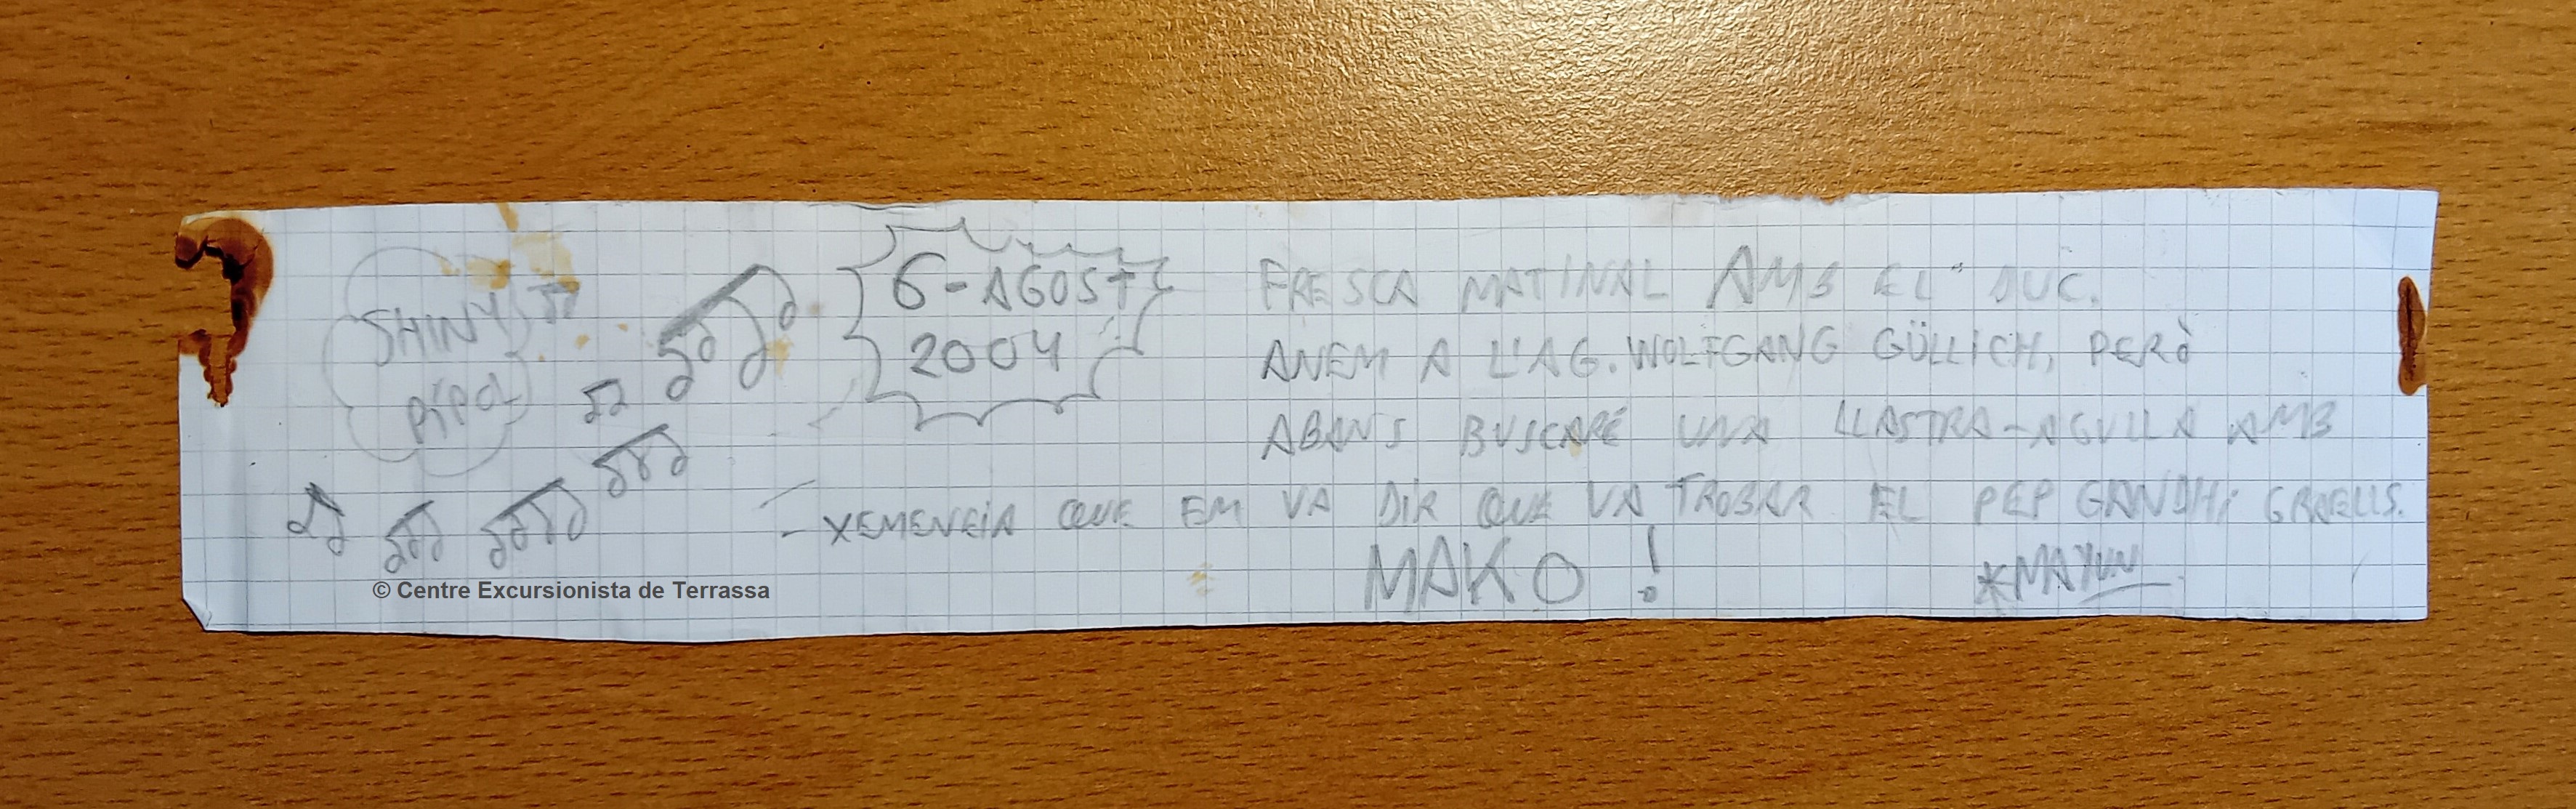 SHINY
PÍPOL
6-AGOST
2004
FRESCA MATINAL AMB EL DUC.
ANEM A L'AG. WOLFGANG GÜLLICH, PERÒ
ABANS BUSCARÉ UNA LLASTRA-AGULLA AMB
XEMENEIA QUE EM VA DIR QUE VA TROBAR EL PEP GANDHI GRAELLS.
MAKO!
© Centre Excursionista de Terrassa